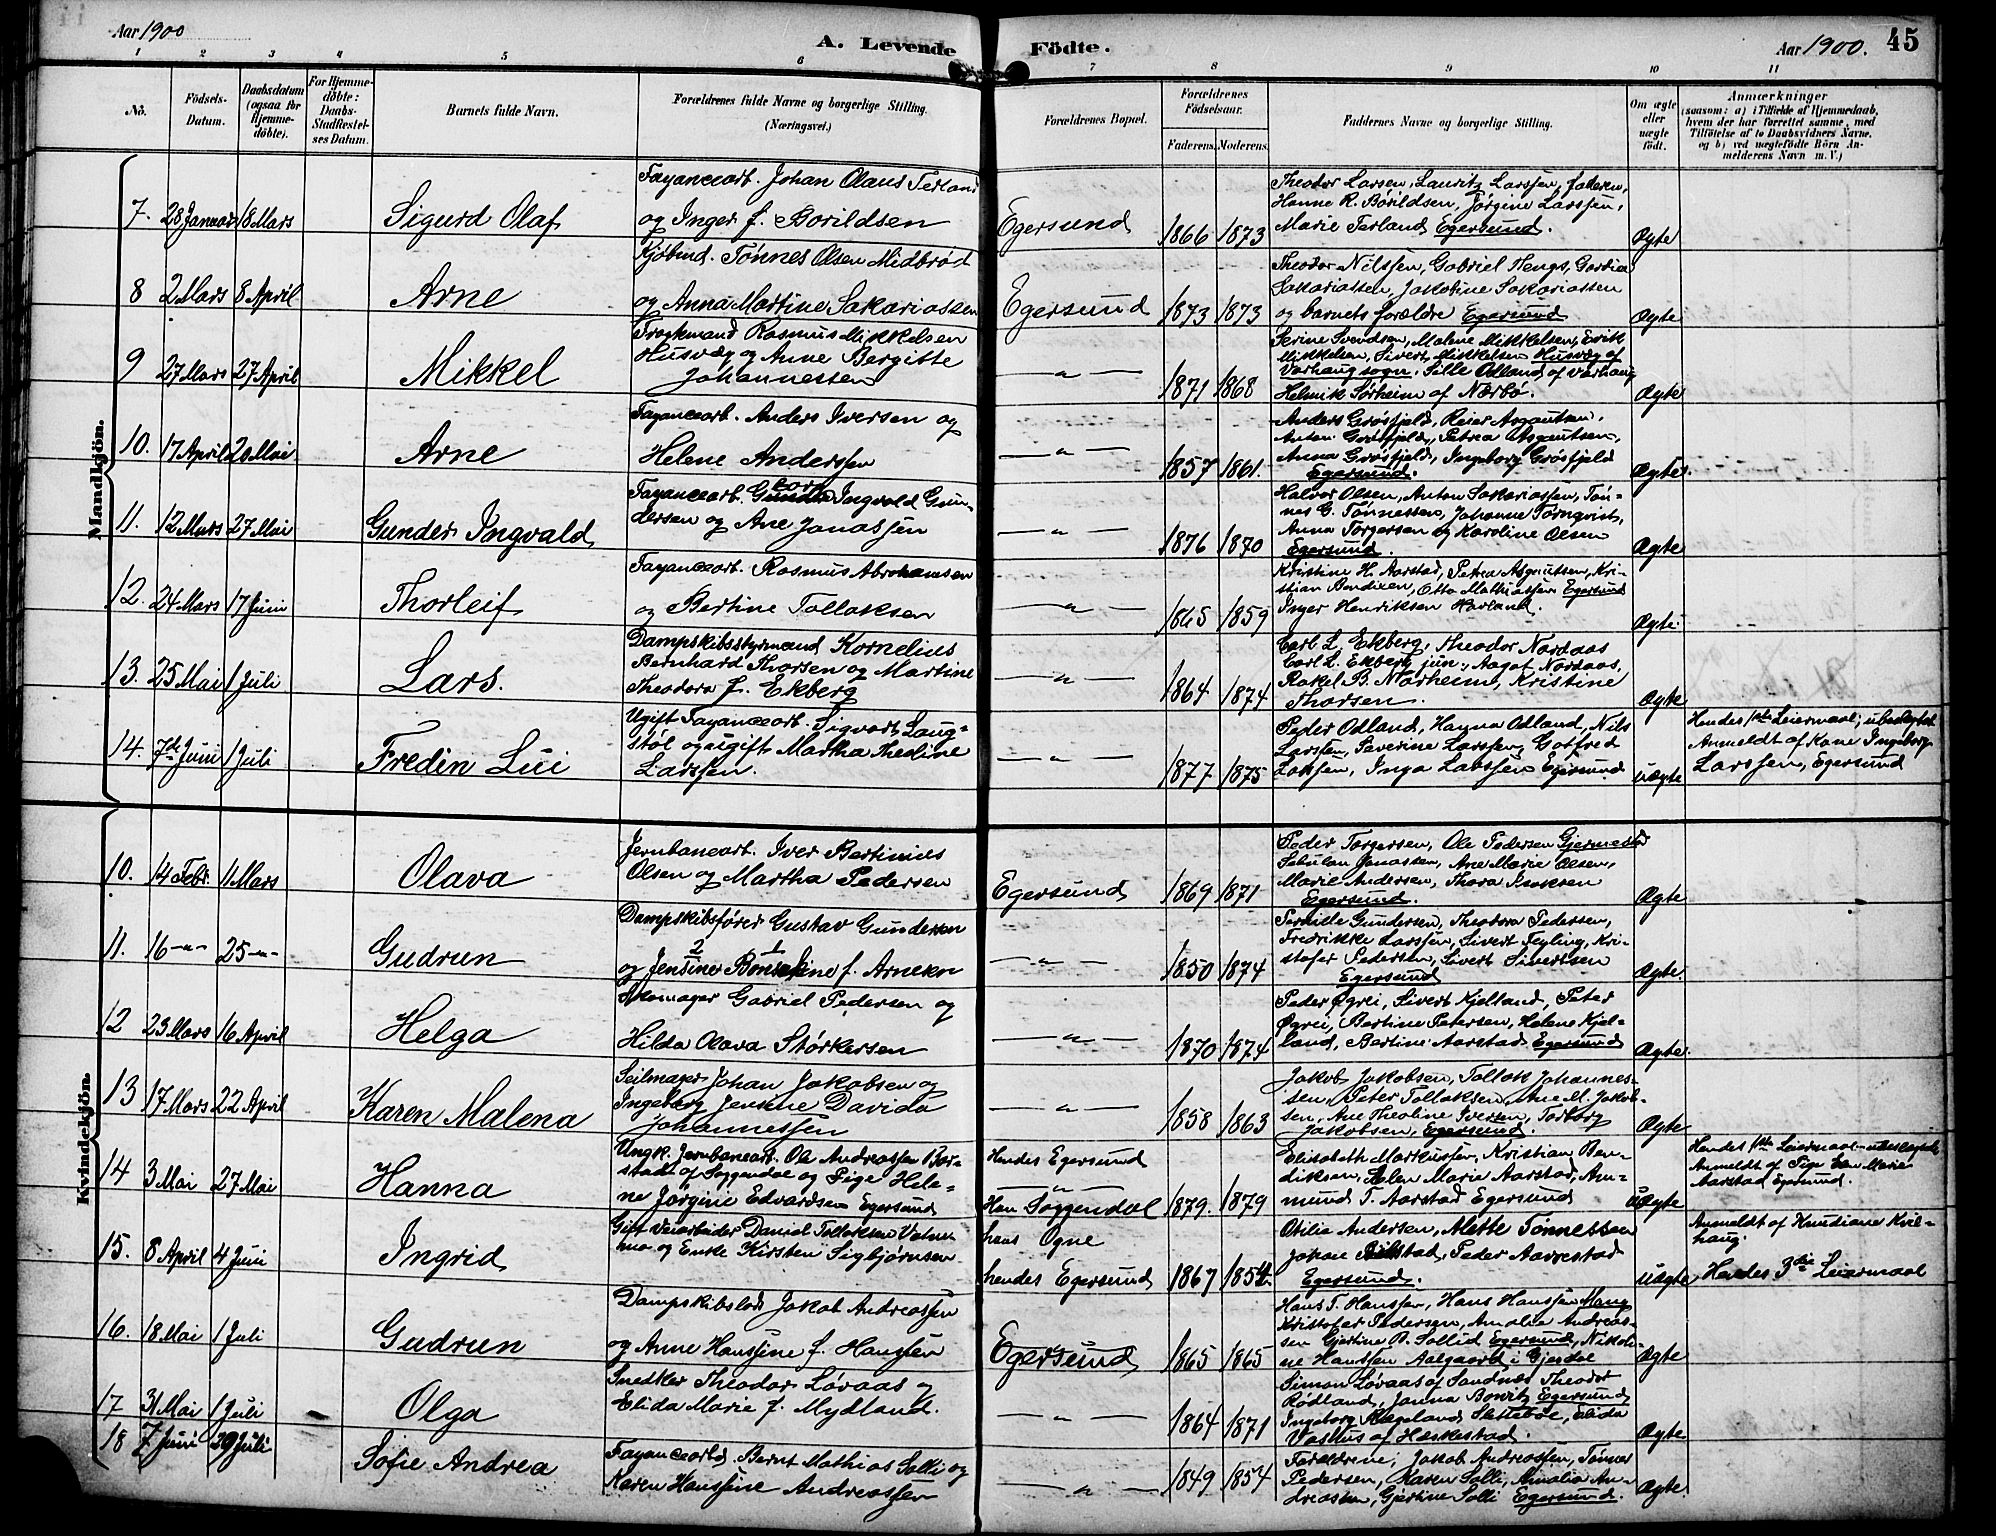 Aar 1900
A. Levende Födte.
Aar 1900. 45
1 2 3 4 5 6 7 8 9 10 11
No.
Födsels-
Datum.
Daabsdatum
(ogsaa for
Hjemme-
döbte).
For Hjemme-
döbte:
Daabs-
Stadfæstel-
ses Datum.
Barnets fulde Navn.
Forældrenes fulde Navne og borgerlige Stilling.
(Næringsvei.)
Forældrenes Bopæl.
Forældrenes
Födselsaar.
Faderens. Moderens.
Faddernes Navne og borgerlige Stilling.
Om ægte
eller
uægte
födt.
Anmærkninger
(saasom: a) i Tilfælde af Hjemmedaab,
hvem der har forrettet samme, med
Tilföielse af to Daabsvidners Navne,
og b) ved uægtefödte Börn An-
melderens Navn m. V.)
Mandkjön.
7. 28 Januar 18 Mars
Sigurd Olaf
Fayancearb. Johan Olaus Terland
og Inger f. Borildsen
Egersund
1866 1873
Theodor Larsen, Lauritz Larssen,
Hanne R. Börildsen, Jörgine Larssen,
Marie Terland Egersund.
Ægte
8 2 Mars 8 April
Arne
Kjöbmd. Tönnes Olsen Midbröd
og Anna Martine Sakariassen
Egersund
1873 1873
Theodor Nilssen, Gabriel Hengs,
Sakariassen, Jakobine Sakariassen
og barnets forældre Egersund
Ægte
9 27 Mars 27 April
Mikkel
Rasmus Mikkelsen
Husvæg og Anne Bergitte
Johannessen
— " —
1871 1868
Serine Svendsen, Malene Mikkelsen, Erik
Mikkelsen, Sivert Mikkelsen Husvæg af
Varhaug sogn. Sille Odland, af Varhaug
Helmik Sörheim af Nærbö.
Ægte
10. 17 April 20 Mai
Arne
Fayancearb. Anders Iversen og
Helene Anderssen
— " —
1857 1861.
Anders Grösfjeld, Reier Asgautsen,
Anton Grösfjeld, Petra Asgautsen,
Anna Grösfjeld, Ingeborg Grösfjeld
Egersund.
Ægte.
11. 12 Mars 27 Mai
Gunder Ingvald
Fayancearb. Ingvald Gun-
dersen og Ane Jonassen
— " —
1876 1870
Halvor Olsen, Anton Sakariassen, Tön-
nes G. Tönnessen, Johanne Törnqvist,
Anna Torgersen og Karoline Olsen
Egersund.
Ægte
12. 24 Mars 17 Juni
Thorleif
Fayancearb. Rasmus Abrahamsen
og Bertine Tollaksen
— " —
1865 1859
Kristine H. Aarstad, Petra Asgautsen, Kri-
stian Bendixen, Otto Mathiassen Egersund
Inger Henriksen Havland.
Ægte
13. 25 Mai 1 Juli
Lars.
Dampskibsstyrmand Kornelius
Bernhard Thorsen og Martine
Theodora f. Ekberg
— " —
1864 1874
Carl L. Ekberg, Theodor Nordaas
Carl L. Ekberg jun., Aagot Nordaas,
Rakel B. Norheim, Kristine
Thorsen.
Ægte
14. 7de Juni 1 Juli
Fredin Lui
Ugift Fayancearb. Sigvart Laug-
stöl og ugift Martha Theoline
Larssen.
— " —
1877 1875
Peder Odland, Hanna Odland, Nils
Larssen, Severine Larssen, Gotfred
Larssen, Inga Larssen Egersund
uægte
Hendes 1ste Leiermaal; ubeslegtet
Anmeldt af Kone Ingeborg
Larssen, Egersund
Kvindekjön.
10. 14 Febr. 11 Mars
Olava
Jernbanearb. Iver Bertinius
Olsen og Martha Pedersen
Egersund
1869 1871
Peder Torgersen, Ole Pedersen Gjermestad
Sebulon Jonassen, Ane Marie Olsen,
Marie Andersen, Thora Isaksen
Egersund.
Ægte
11. 16 -"- 25 -"-
Gudrun
Dampskibsförer Gustav Gundersen
2 1
og Jensine f. Arnesen
— " —
1850 1874
Pernille Gundersen, Theodora Pedersen,
Fredrikke Larssen, Sivert Feyling, Kri-
stofer Pedersen, Sivert Sivertsen
Egersund
Ægte
12 23 Mars 16 April
Helga
Skomager Gabriel Pedersen og
Hilda Olava Störkersen
— " —
1870 1874
Peder Ögrei, Sivert Kjelland, Peter
Ögrei, Bertine Petersen, Helene Kjel-
land, Bertine Aarstad Egersund
Ægte.
13 17 Mars 22 April
Karen Malena
Seilmager Johan Jakobsen og
Ingeborg Jensine Davida
Johannessen
— " —
1858 1863
Jakob Jakobsen, Tollak Johannes-
sen, Peter Tollaksen, Ane M. Jakob-
sen, Ane Theoline Iversen, Torborg
Jakobsen, Egersund.
Ægte
14 3 Mai 27 Mai
Hanna
Ungk. Jernbanearb. Ole Andreassen Bar-
stad af Soggendal og Pige Hele-
ne Jörgine Edvardsen Egersund
Hendes Egersund
— " —
Han Soggendal
1879. 1879
Elisabeth Markussen, Kristian Ben-
diksen, Elen Marie Aarstad, An-
mund T. Aarstad Egersund
uægte
Hendes 1ste Leiermaal - ubeslegtede
Anmeldt af Pige Elen Marie
Aarstad Egersund.
15. 8 April 4 Juni
Ingrid
Gift Veiarbeider Daniel Tollaksen
og Enke Kirsten Sigbjörnsen
hans Ogne
hendes Egersund
1867 1854
Otilia Andersen, Mette Tönnessen
Johan Aarstad, Peder Aarrestad
Egersund.
uægte
Anmeldt af Kristiane Kvil-
haug.
Hendes 3die Leiermaal
16. 18 Mai 1 Juli
Gudrun
Dampskibslods Jakob Andreassen
og Anne Hanssine f. Hanssen
Egersund
1865 1865
Hans T. Hanssen, Hans Hanssen Mong
Kristofer Pedersen, Amalia Andreas-
sen Gjertine B. Sollid Egersund, Nikoli-
ne Hanssen Aalgaard i Gjesdal
Ægte
17 31 Mai 1 Juli
Olga
Snedker Theodor Lövaas og
Elida Marie f. Mydland.
— " —
1864 1871
Simon Lövaas af Sandnes Theodor
Rödland, Janna Bowitz Egersund
Ingeborg Rægeland Slettebö, Elida
Vashus af Heskestad.
Ægte
18 7 Juni 29 Juli
Sofie Andrea
Fayancearbd. Bernt Mathias Solli og
Karen Hanssine Andreassen
— " —
1849 1854
Forældrene, Jakob Andreassen, Tönnes
Pedersen, Karen Solli, Amalia An-
dreassen, Gjertine Solli Egersund.
Ægte.